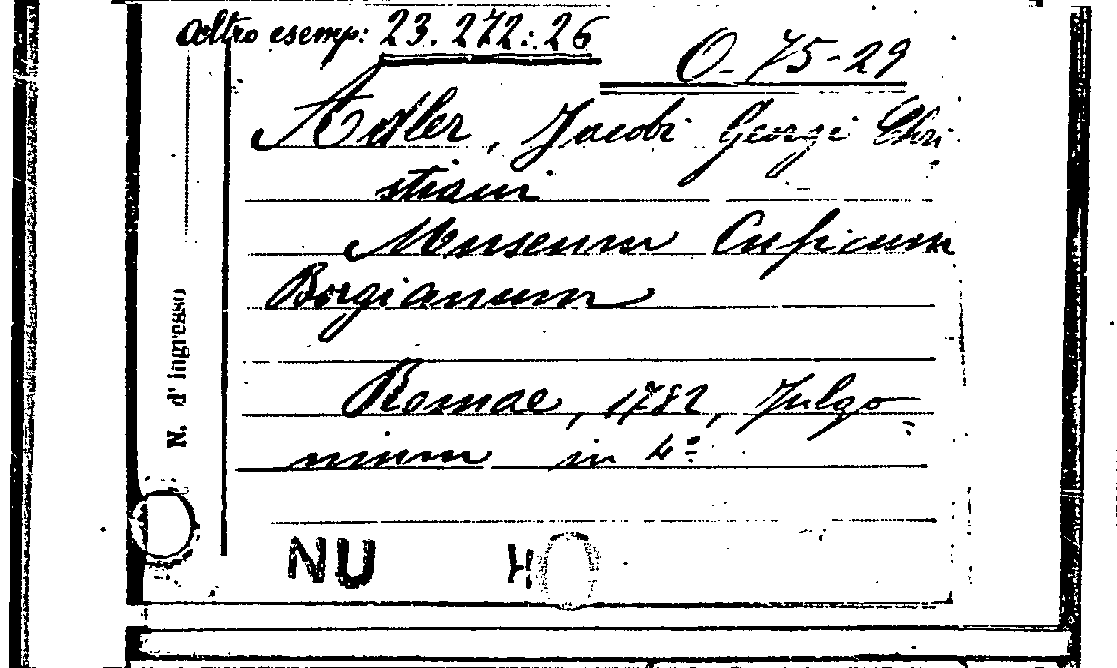 altro esemp: 23.272.:26
O-75-29
Adler, Jacobi Georgi Chri
stiani
Museum Cuficum
Borgianum
Romae, 1782, Fulgo
nium in 4º
N. d'ingresso
NU